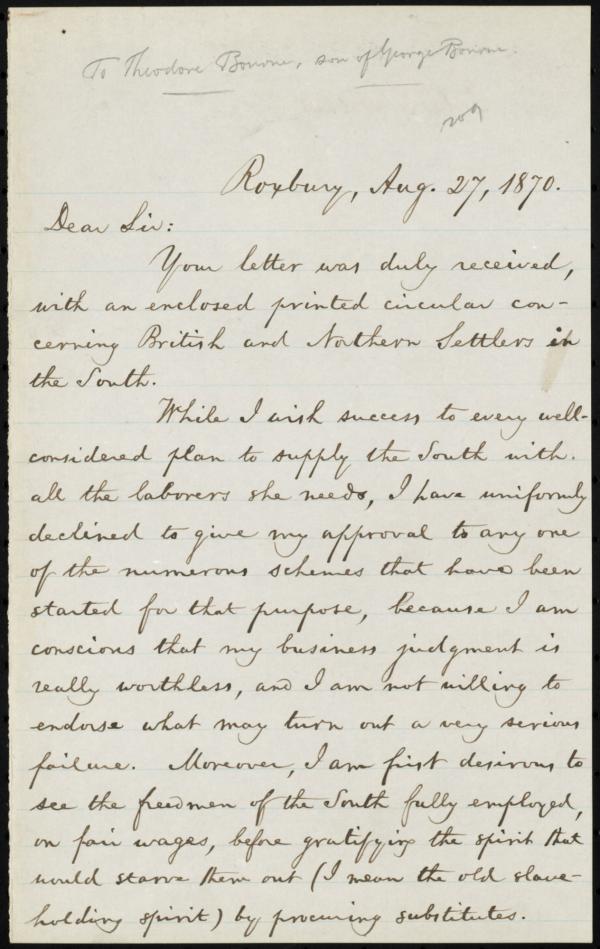 To Theodore Bourne, son of George Bourne.
209
Roxbury, Aug. 27, 1870.
Dear Sir:
Your letter was duly received,
with an enclosed printed circular con-
cerning British and Northern Settlers in
the South.
While I wish success to every well-
considered plan to supply the South with
all the laborers she needs, I have uniformly
declined to give my approval to any one
of the numerous schemes that have been
started for that purpose, because I am
conscious that my business judgment is
really worthless, and I am not willing to
endorse what may turn out a very serious
failure. Moreover, I am first desirous to
see the freedmen of the South fully employed,
on fair wages, before gratifying the spirit that
would starve them out (I mean the old slave-
holding spirit) by procuring substitutes.